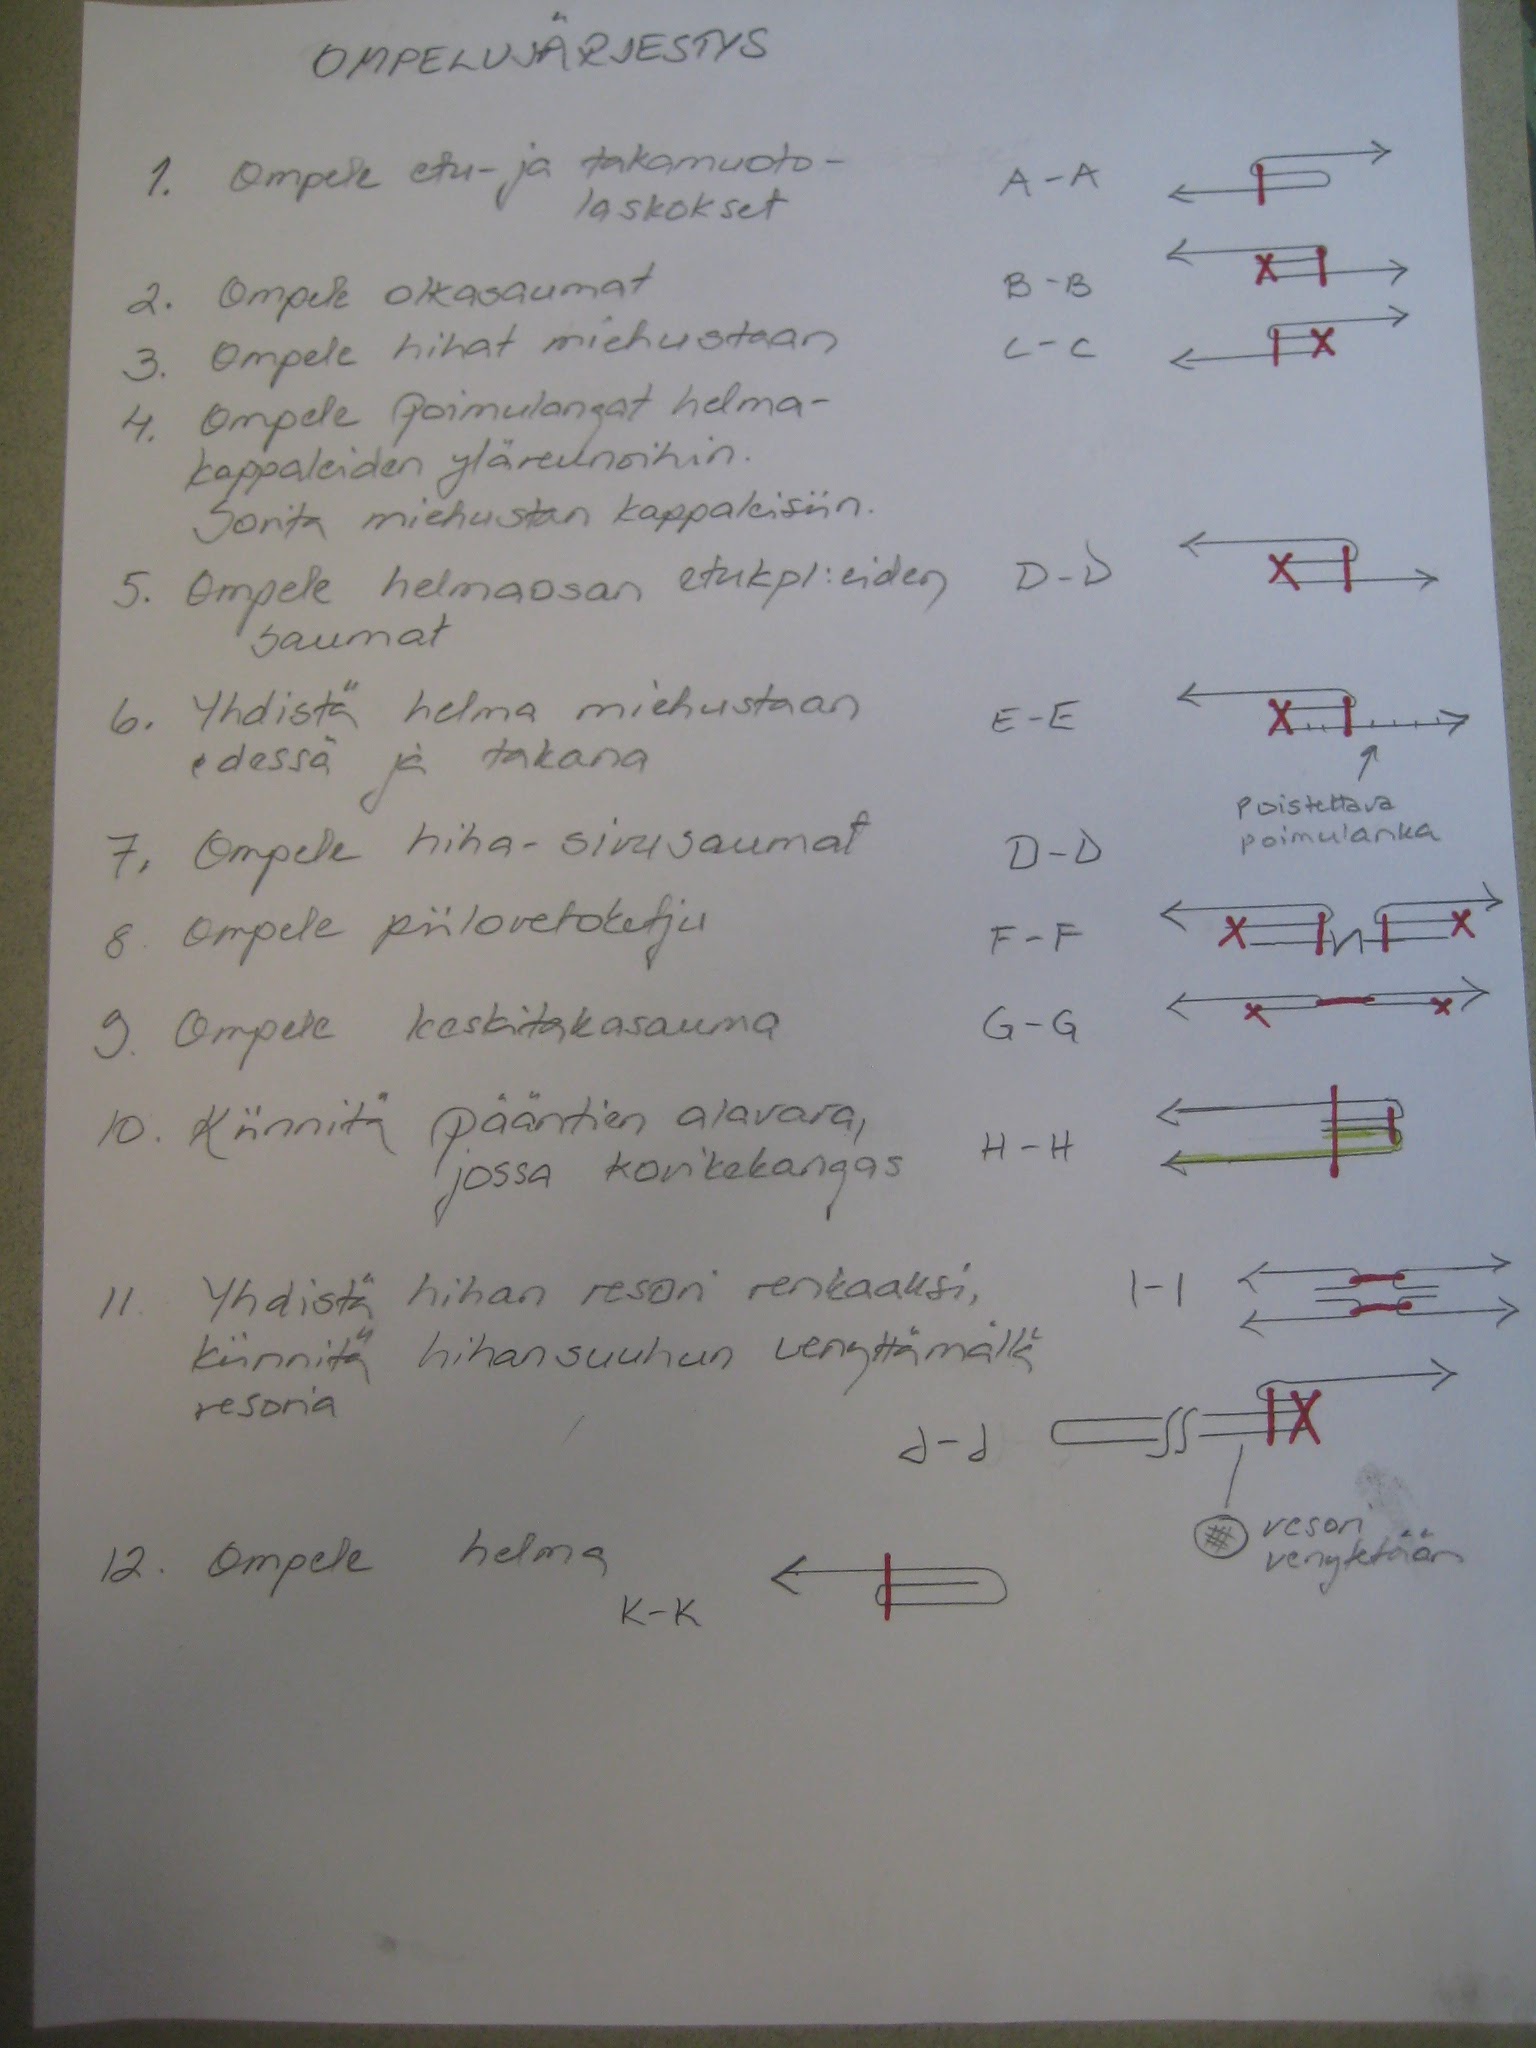 OMPELUJÄRJESTYS
1. Ompele etu- ja takamuoto- A-A
laskokset
2. Ompele olkasaumat B-B
3. Ompele hihat miehustaan C-C
4. Ompele poimulangat helma-
kappaleiden yläreunoihin.
Sovita miehustan kappaleisiin.
5. Ompele helmaosan etukpl:eiden D-D
saumat
6. Yhdistä helma miehustaan E-E
edessä ja takana
poistettava
poimulanka
7. Ompele hiha-sivusaumat D-D
8. Ompele piilovetoketju F-F
9. Ompele keskitakasauma G-G
10. Kiinnitä pääntien alavara,
jossa kovikekangas H-H
11. Yhdistä hihan resori renkaaksi, I-I
kiinnitä hihansuuhun venyttämällä
resoria
J-J
resori
venytetään
12. Ompele helma
K-K